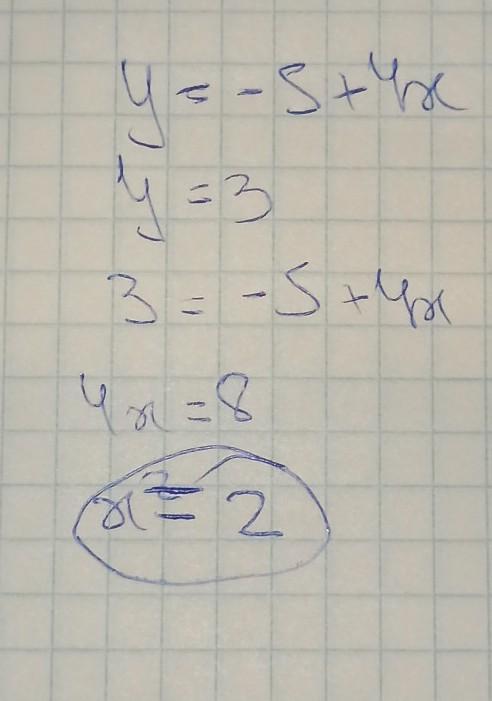 y = -5 + 4x
y = 3
3 = -5 + 4x
4x = 8
x = 2